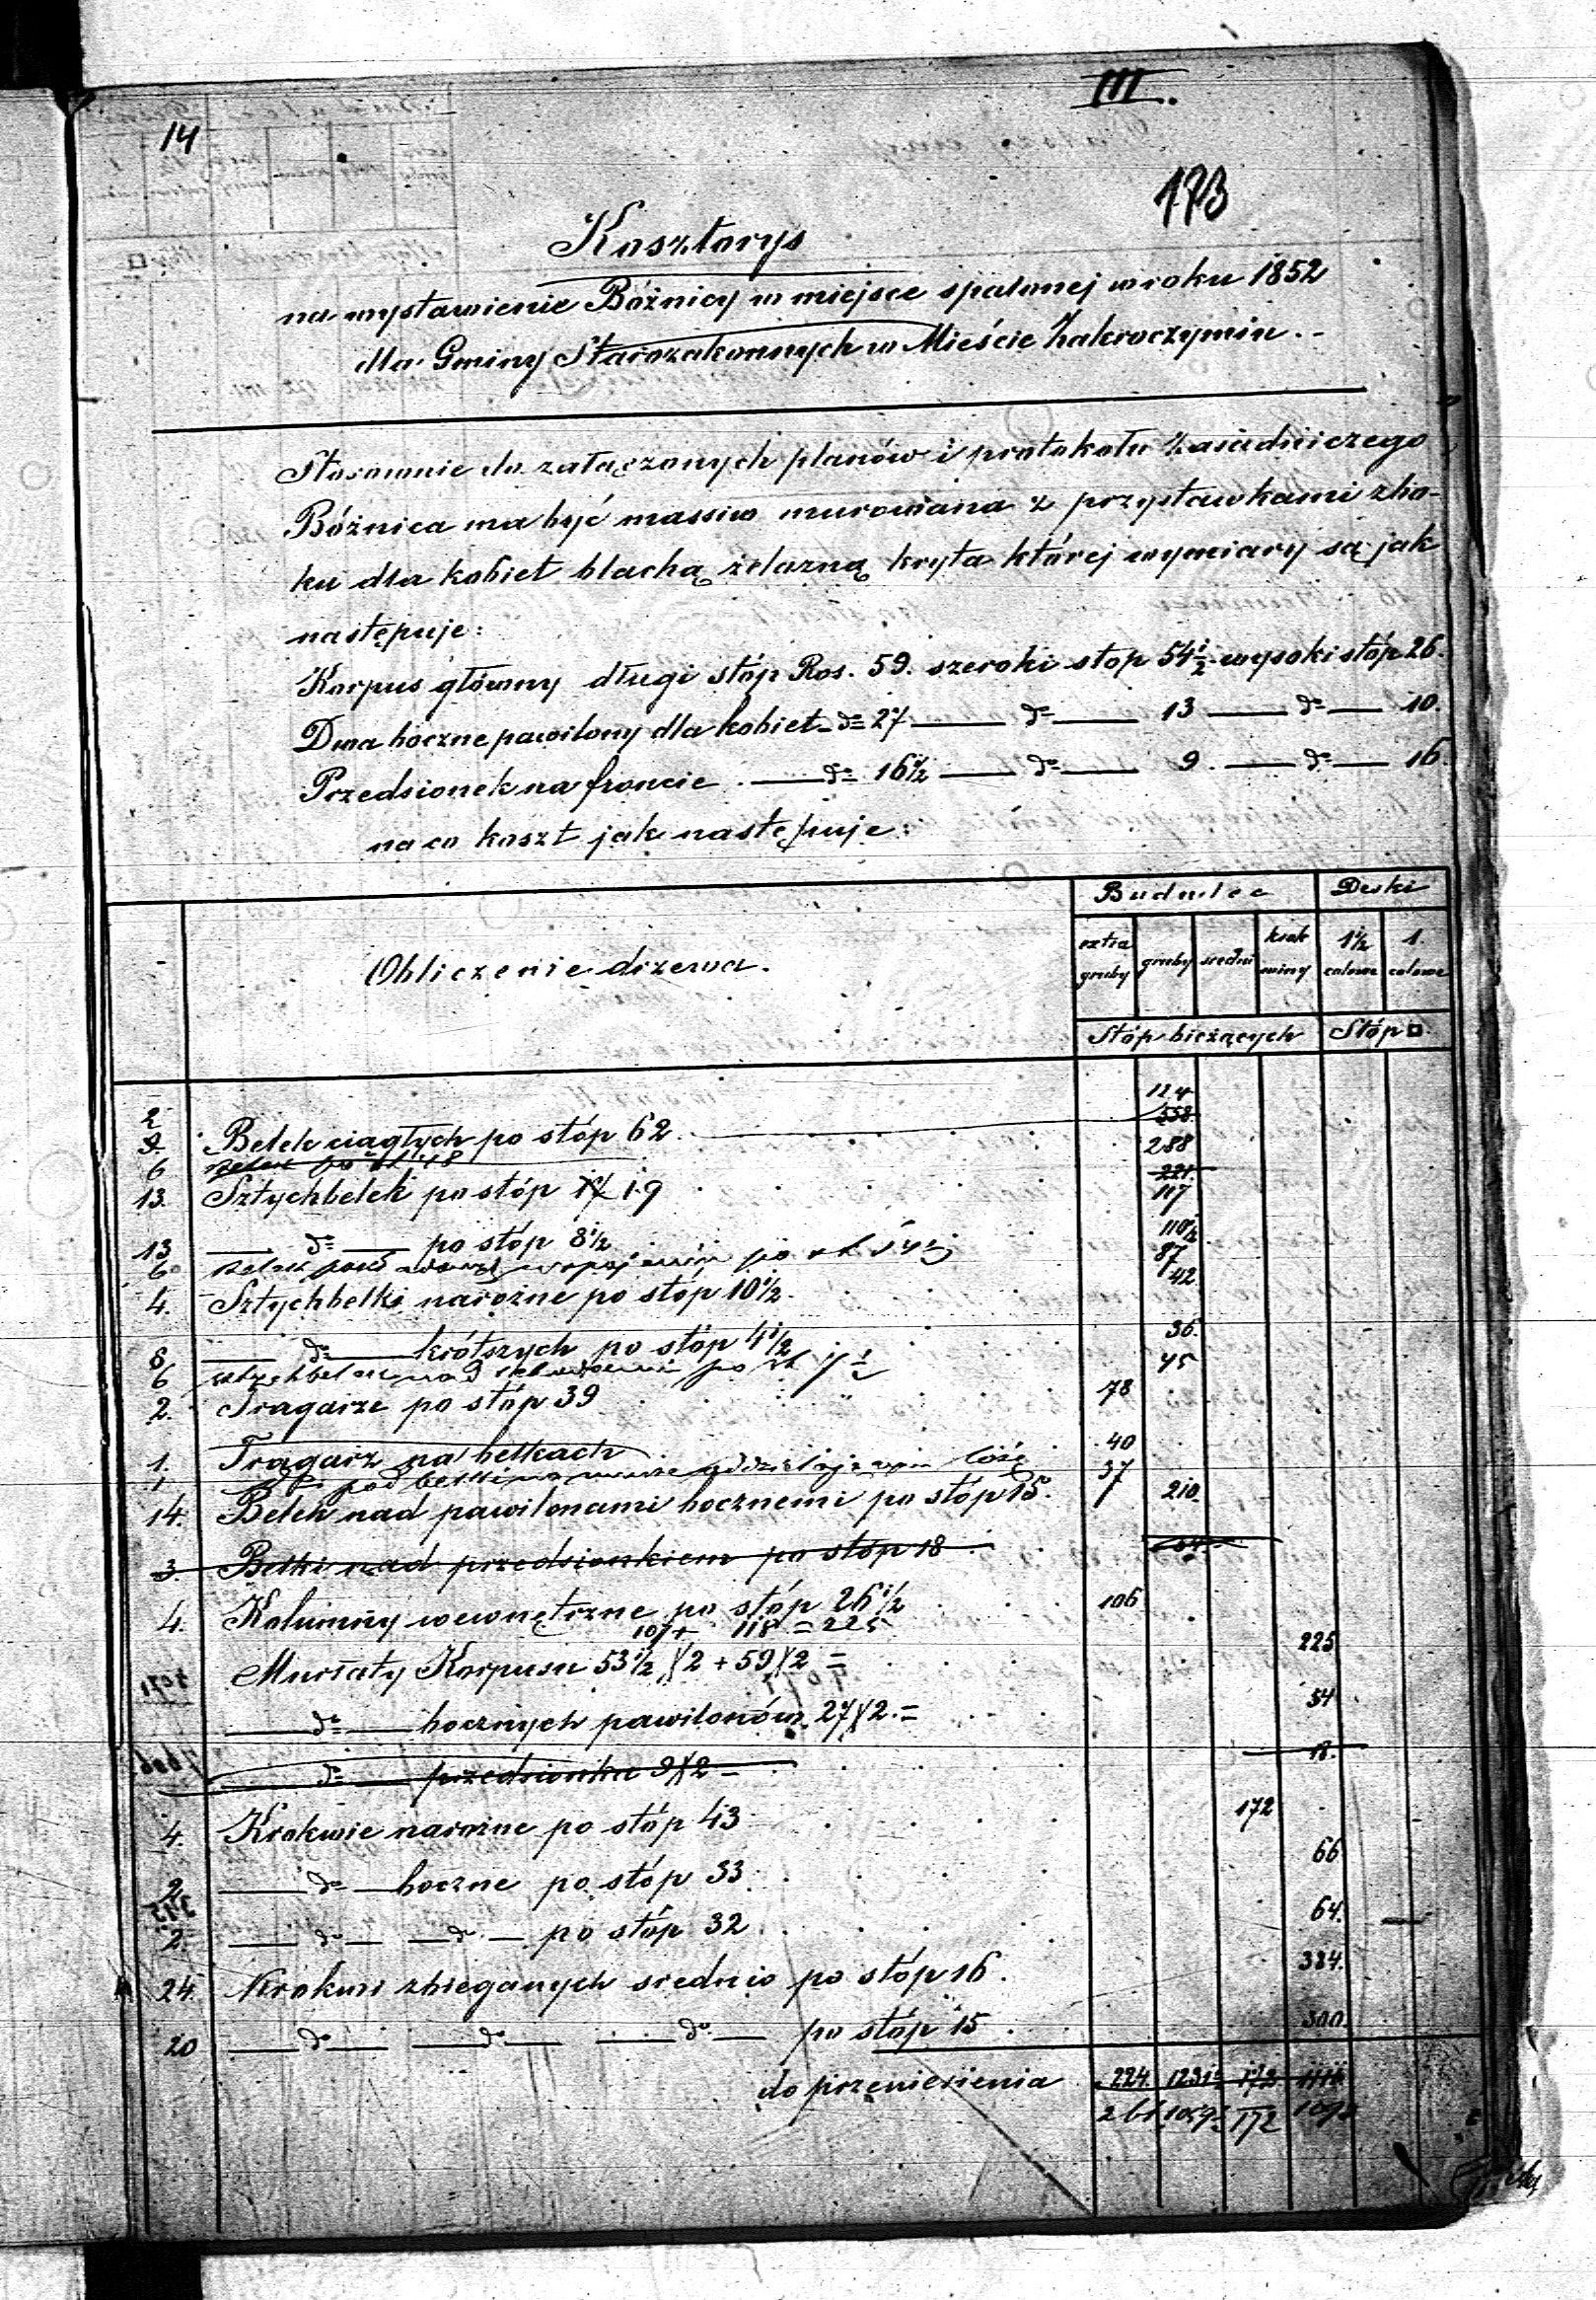 III.
14
173
Kosztorys
na wystawienie Bóżnicy w miejsce spalonej w roku 1852
dla Gminy Starozakonnych w Mieście Zakroczymiu. -
Stosownie do załączonych planów i protokołu Zasadniczego
Bóżnica ma być massiw murowana z przystawkami zbo-
ku dla kobiet blachą żelazną kryta której wymiary są jak
następuje:
Korpus główny długi stóp Ros. 59. szeroki stop 54 1/2 wysoki stóp 26.
Dwa boczne pawilony dla kobiet - do 27 — do — 13 — do — 10.
Przedsionek na froncie . — do 16 1/2 — do — 9. — do — 16.
na co koszt jak następuje:
Obliczenie drzewa.
Budulec Deski
extra gruby gruby średni 1 1/2 calowe 1. calowe
Stóp bieżących Stóp □.
124
2
9. Belek ciągłych po stóp 62. 558.
6 belek po st 48 288
221.
13. Sztychbelek po stóp 17 19 117
13 — do — po stóp 8 1/2 110 1/2
6 belek po st 14 1/2 87
4. Sztychbelki narożne po stóp 10 1/2. 42
8 — do — krótszych po stóp 4 1/2 36.
6 sztychbelek nad po st 7 1/2 45
2. Tragarze po stóp 39 78
1. Tragarz na belkach 40
1 do pod belki na murze 37
14. Belek nad pawilonami bocznemi po stóp 15. 210.
3. Belki nad przedsionkiem po stóp 18 54
4. Kolumny wewnętrzne po stóp 26 1/2 106
107 + 118 = 225
Murłaty Korpusu 53 1/2 X 2 + 59 X 2 = 225
— do — bocznych pawilonów 27 X 2. = 54
— do — przedsionka 9 X 2 = 18.
4. Krokwie narożne po stóp 43 172
2 — do — boczne po stóp 33. 66
2. — do — do — po stóp 32. 64.
24. Krokwi zbieganych średnio po stóp 16. 384.
20 — do — do — do — po stóp 15. 300.
do przeniesienia 224. 1231 172 1111
261 1059 1/2 172 1093